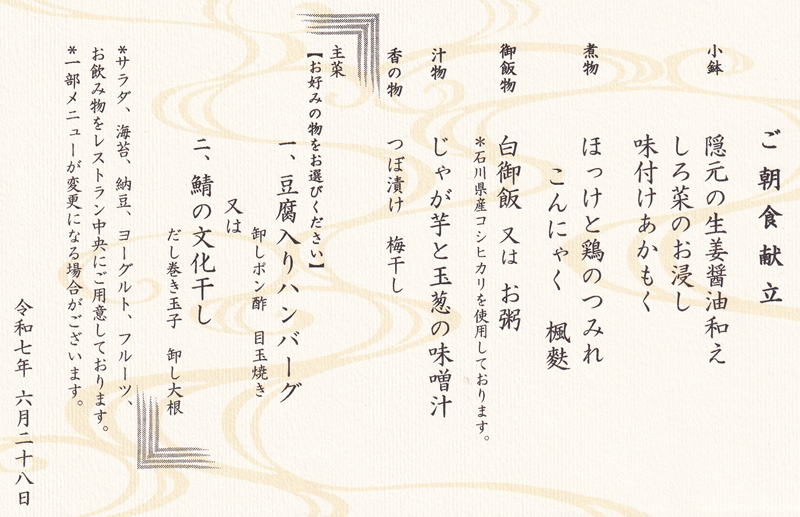 ご朝食献立
小鉢
隠元の生姜醤油和え
しろ菜のお浸し
味付けあかもく
煮物
ほっけと鶏のつみれ
こんにゃく 楓麩
御飯物
白御飯 又は お粥
*石川県産コシヒカリを使用しております。
汁物
じゃが芋と玉葱の味噌汁
香の物
つぼ漬け 梅干し
主菜
【お好みの物をお選びください】
一、豆腐入りハンバーグ
卸しポン酢 目玉焼き
又は
二、鯖の文化干し
だし巻き玉子 卸し大根
*サラダ、海苔、納豆、ヨーグルト、フルーツ、
お飲み物をレストラン中央にご用意しております。
*一部メニューが変更になる場合がございます。
令和七年 六月二十八日